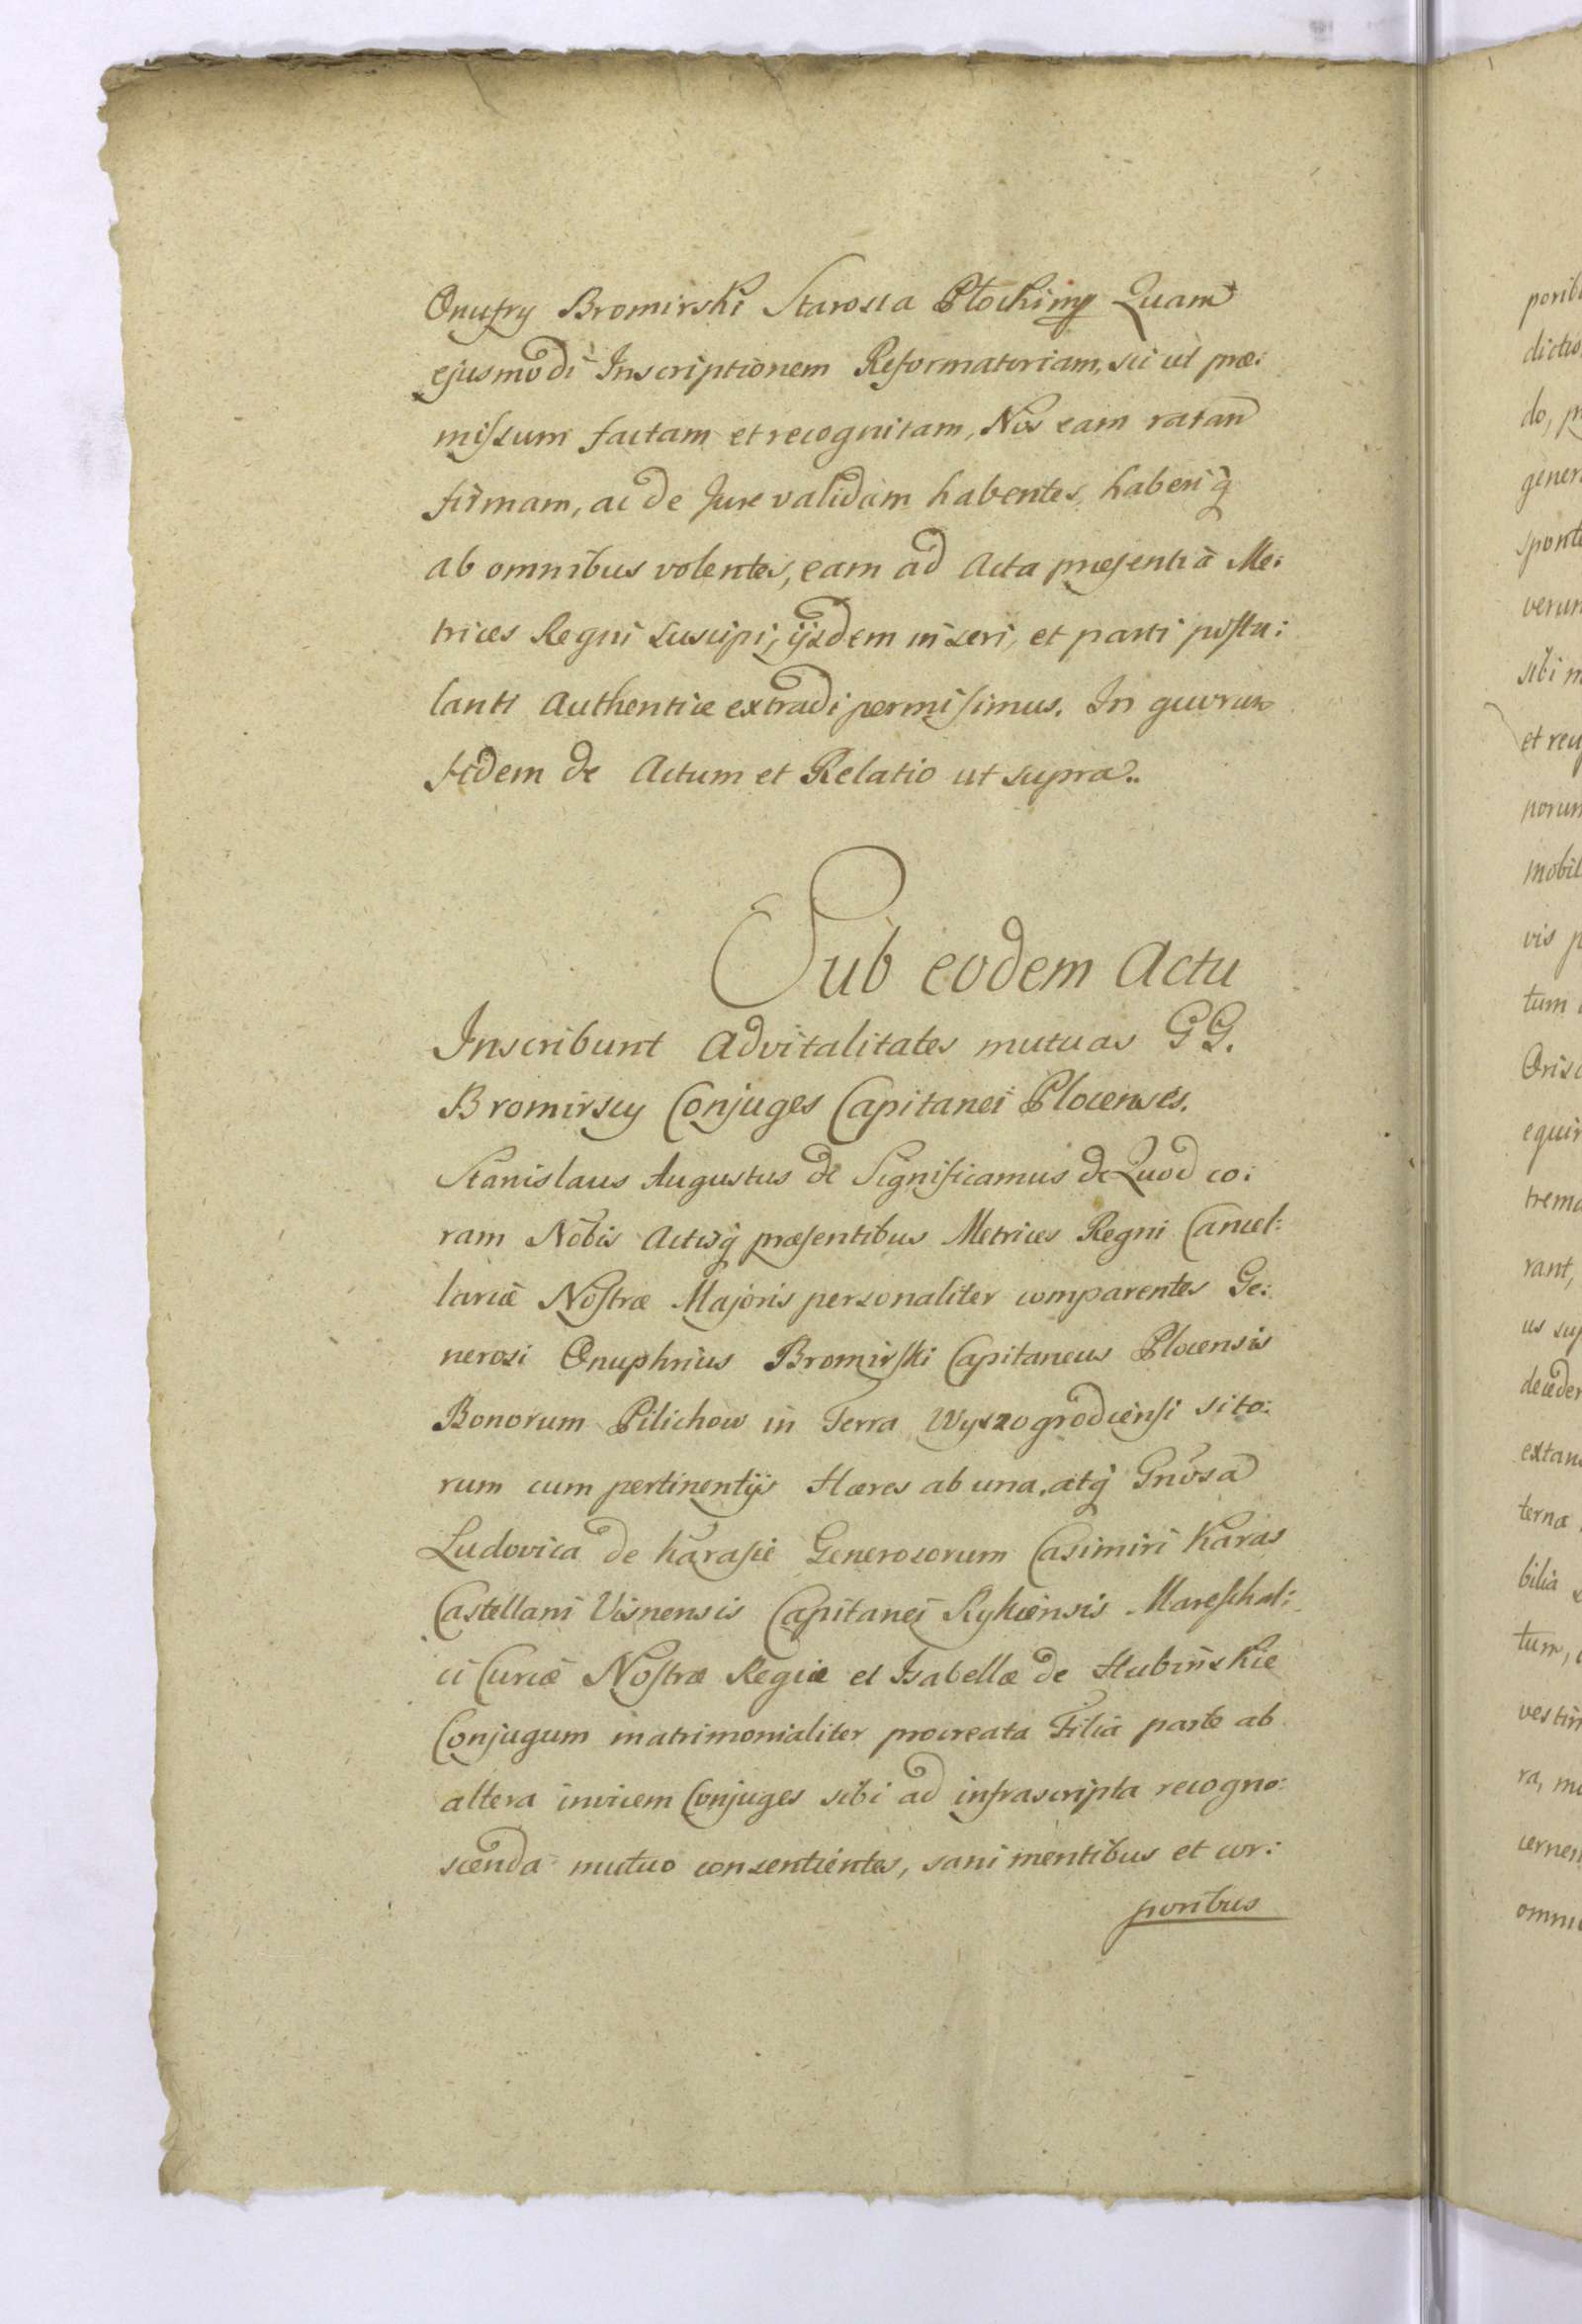 Onufry Bromirski Starosta Płocki mp Quam
ejusmodi Inscriptionem Reformatoriam, sic ut præ:
missum factam et recognitam, Nos eam ratam
firmam, ac de Jure validam habentes, haberiq
ab omnibus volentes, eam ad Acta præsentia Me:
trices Regni suscipi, ijsdem inseri, et parti postu:
lanti Authentice extradi permisimus. In quorum
fidem &c Actum et Relatio ut supra..
Sub eodem Actu
Inscribunt Advitalitates mutuas GG.
Bromirscy Conjuges Capitanei Plocenses.
Stanislaus Augustus &c Significamus &c Quod co:
ram Nobis Actisq præsentibus Metrices Regni Cancel:
lariæ Nostræ Majoris personaliter comparentes Ge:
nerosi Onuphrius Bromirski Capitaneus Plocensis
Bonorum Pilichow in Terra Wyszogrodiensi sito:
rum cum pertinentijs Hæres ab una, atq Gnosa
Ludovica de Karasie Generosorum Casimiri Karas
Castellani Visnensis Capitanei Rykiensis Mareschal:
ci Curiæ Nostræ Regiæ et Isabellæ de Hubińskie
Conjugum matrimonialiter procreata Filia parte ab
altera invicem Conjuges sibi ad infrascripta recogno:
scenda mutuo consentientes, sani mentibus et cor:
poribus